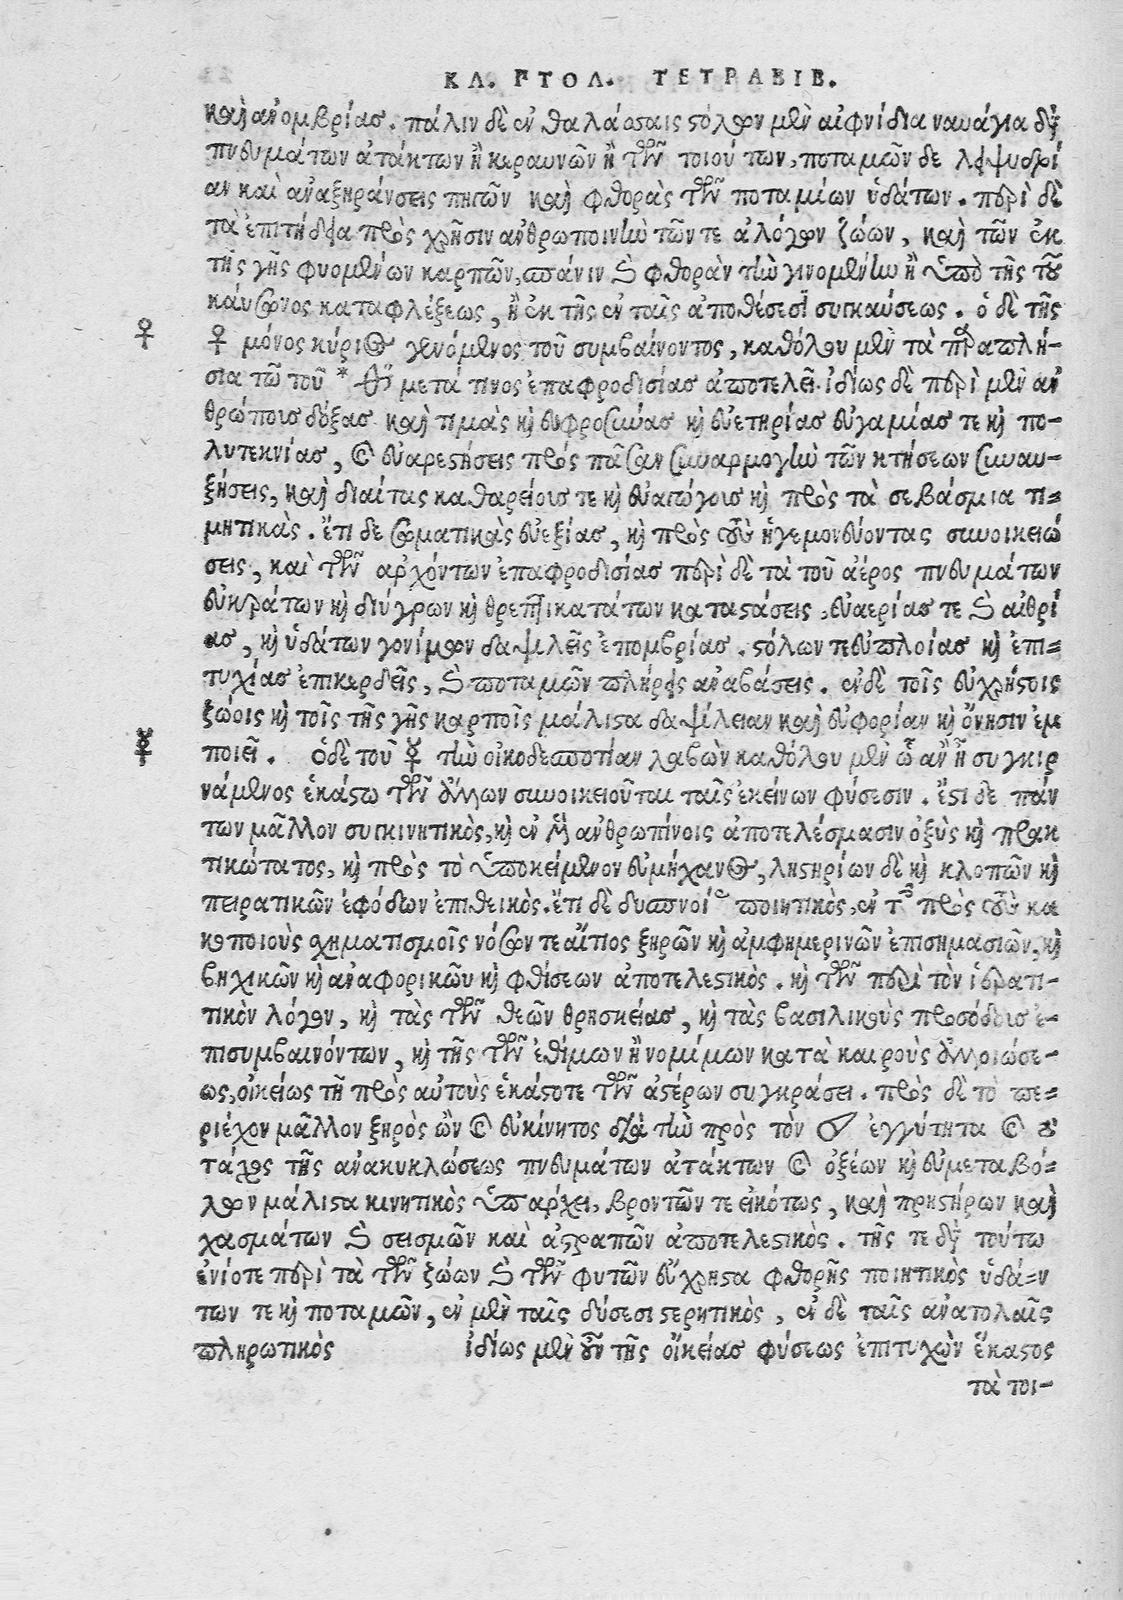 ΚΛ. ΠΤΟΛ. ΤΕΤΡΑΒΙΒ.
καὶ ἀνομβρίας. πάλιν δὲ ἐν θαλάσσαις στόλων μὲν αἰφνίδια ναυάγια διὰ
πνευμάτων ἀτάκτων ἢ κεραυνῶν ἢ τῶν τοιούτων, ποταμῶν δε λειψυδρί
αν καὶ ἀναξηράνσεις πηγῶν καὶ φθορὰς τῶν ποταμίων ὑδάτων. περὶ δὲ
τὰ ἐπιτήδεια πρὸς χρῆσιν ἀνθρωπίνην τῶν τε ἀλόγων ζώων, καὶ τῶν ἐκ
τῆς γῆς φυομένων καρπῶν, σπάνιν καὶ φθορὰν τὴν γινομένην ἢ ὑπὸ τῆς τοῦ
καύσωνος καταφλέξεως, ἢ ἐκ τῆς ἐν ταῖς ἀποθέσεσι συγκαύσεως. ὁ δὲ τῆς
♀
♀ μόνος κύριος γενόμενος τοῦ συμβαίνοντος, καθόλου μὲν τὰ παραπλή-
σια τῶ τοῦ * Διὸς μετά τινος ἐπαφροδισίας ἀποτελεῖ. ἰδίως δὲ περὶ μὲν ἀν
θρώποις δόξας καὶ τιμὰς καὶ εὐφροσύνας καὶ εὐετηρίας εὐγαμίας τε καὶ πο-
λυτεκνίας, καὶ εὐαρεστήσεις πρὸς πᾶσαν συναρμογὴν τῶν κτήσεων συναυ-
ξήσεις, καὶ διαίτας καθαρείους τε καὶ εὐαγώγους καὶ πρὸς τὰ σεβάσμια τι=
μητικὰς. ἔτι δε σωματικὰς εὐεξίας, καὶ πρὸς τοὺς ἡγεμονεύοντας συνοικειώ
σεις, καὶ τῶν ἀρχόντων ἐπαφροδισίας περὶ δὲ τὰ τοῦ ἀέρος πνευμάτων
εὐκράτων καὶ διύγρων καὶ θρεπτικατάτων καταστάσεις, εὐαερίας τε καὶ αἰθρί
ας, καὶ ὑδάτων γονίμων δαψιλεῖς ἐπομβρίας. στόλων τε εὐπλοίας καὶ ἐπι=
τυχίας ἐπικερδεῖς, καὶ ποταμῶν πλήρεις ἀναβάσεις. ἐν δὲ τοῖς εὐχρήστοις
ζώοις καὶ τοῖς τῆς γῆς καρποῖς μάλιστα δαψίλειαν καὶ εὐφορίαν καὶ ὄνησιν ἐμ
☿
ποιεῖ. ὁ δὲ τοῦ ☿ τὴν οἰκοδεσποτίαν λαβὼν καθόλου μὲν ᾧ ἂν ἦ συγκιρ
νάμενος ἑκάστω τῶν ἄλλων συνοικειοῦται ταῖς ἐκείνων φύσεσιν. ἔστι δε πάν
των μᾶλλον συγκινητικὸς, καὶ ἐν μὲν ἀνθρωπίνοις ἀποτελέσμασιν ὀξὺς καὶ πρακ
τικώτατος, καὶ πρὸς τὸ ὑποκείμενον εὐμήχανος, ληστηρίων δὲ καὶ κλοπῶν καὶ
πειρατικῶν ἐφόδων ἐπιθετικὸς. ἔτι δὲ δυσπνοίας ποιητικὸς, ἐν τοῖς πρὸς τοὺς κα
κοποιοὺς σχηματισμοῖς νόσων τε αἴτιος ξηρῶν καὶ ἀμφημερινῶν ἐπισημασιῶν, καὶ
βηχικῶν καὶ ἀναφορικῶν καὶ φθίσεων ἀποτελεστικὸς. καὶ τῶν περὶ τὸν ἱερατι-
τικὸν λόγον, καὶ τὰς τῶν θεῶν θρησκείας, καὶ τὰς βασιλικοὺς προσόδοις ἐ-
πισυμβαινόντων, καὶ τῆς τῶν ἐθίμων ἢ νομίμων κατὰ καιροὺς ἀλλοιώσε-
ως, οἰκείως τῆ πρὸς αὐτοὺς ἑκάστοτε τῶν ἀστέρων συγκράσει. πρὸς δὲ τὸ πε=
ριέχον μᾶλλον ξηρὸς ὢν καὶ εὐκίνητος διὰ τὴν πρὸς τὸν ☉ ἐγγύτητα καὶ τὸ
τάχος τῆς ἀνακυκλώσεως πνευμάτων ἀτάκτων καὶ ὀξέων καὶ εὐμεταβό=
λων μάλιστα κινητικὸς ὑπάρχει, βροντῶν τε εἰκότως, καὶ πρηστήρων καὶ
χασμάτων καὶ σεισμῶν καὶ ἀστραπῶν ἀποτελεστικὸς. τῆς τε διὰ τούτω
ἐνίοτε περὶ τὰ τῶν ζώων καὶ τῶν φυτῶν εὔχρηστα φθορῆς ποιητικὸς ὑδά=ν
των τε καὶ ποταμῶν, ἐν μὲν ταῖς δύσεσι στερητικὸς, ἐν δὲ ταῖς ἀνατολαῖς
πληρωτικὸς ἰδίως μὲν οὖν τῆς οἰκείας φύσεως ἐπιτυχὼν ἕκαστος
τὰ τοι-